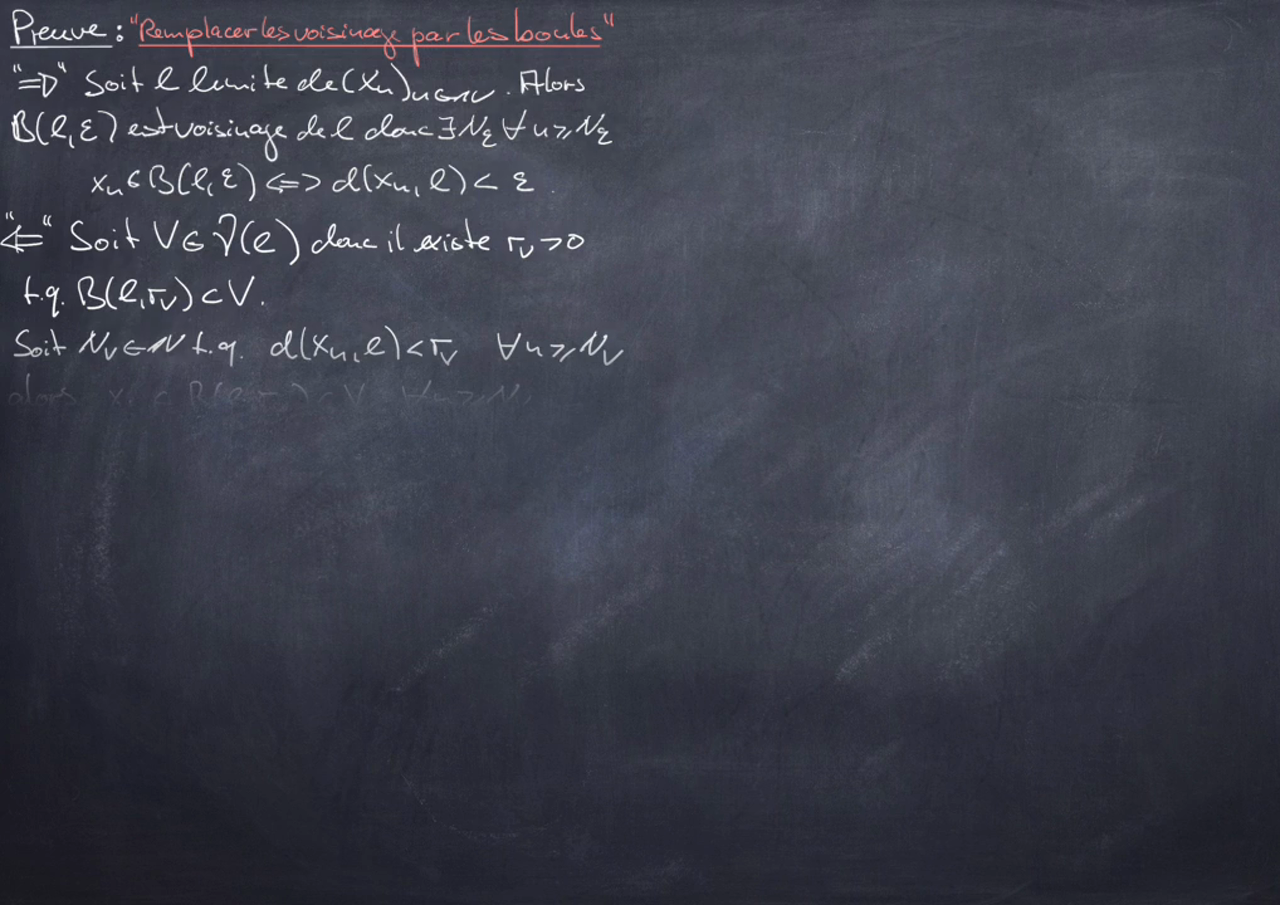 Preuve : "Remplacer les voisinage par les boules"
"⇒" Soit l limite de (xn)n∈ℕ. Alors
B(l,ε) est voisinage de l donc ∃Nε ∀n≥Nε
xn∈B(l,ε) <=> d(xn,l) < ε.
"⇐" Soit V∈𝒱(l) donc il existe rv>0
t.q. B(l,rv)⊂V.
Soit Nv∈ℕ t.q. d(xn,l)<rv ∀n≥Nv
alors xn∈B(l,rv)⊂V ∀n≥Nv